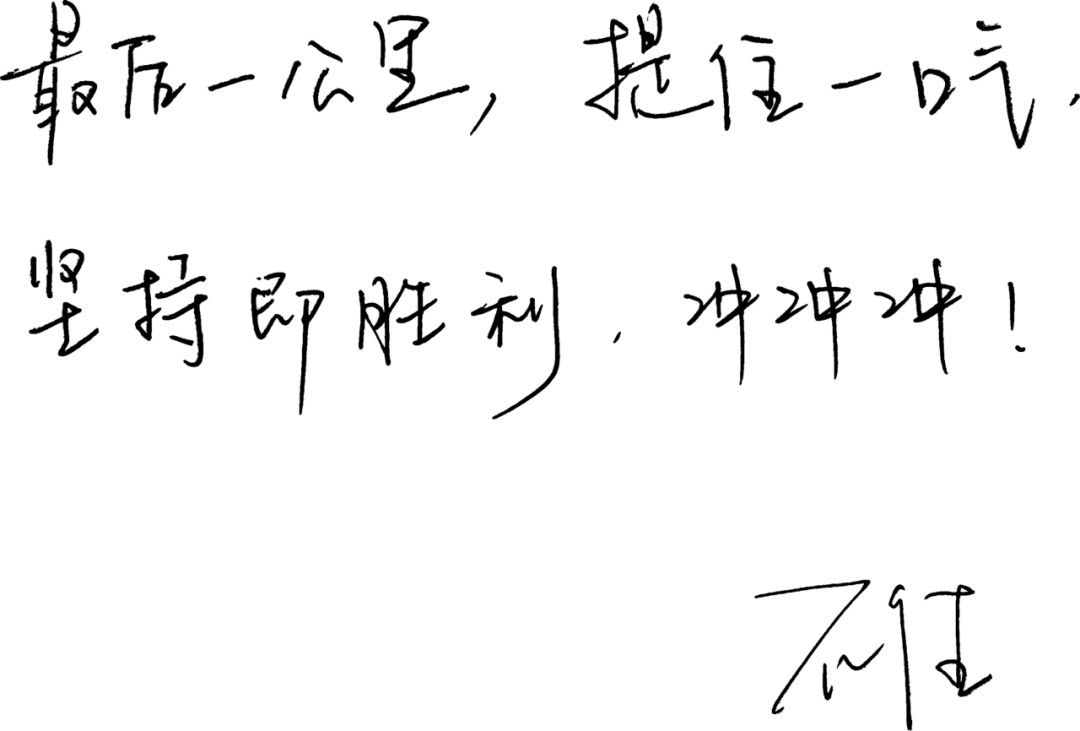 最后一公里，提住一口气，
坚持即胜利，冲冲冲！